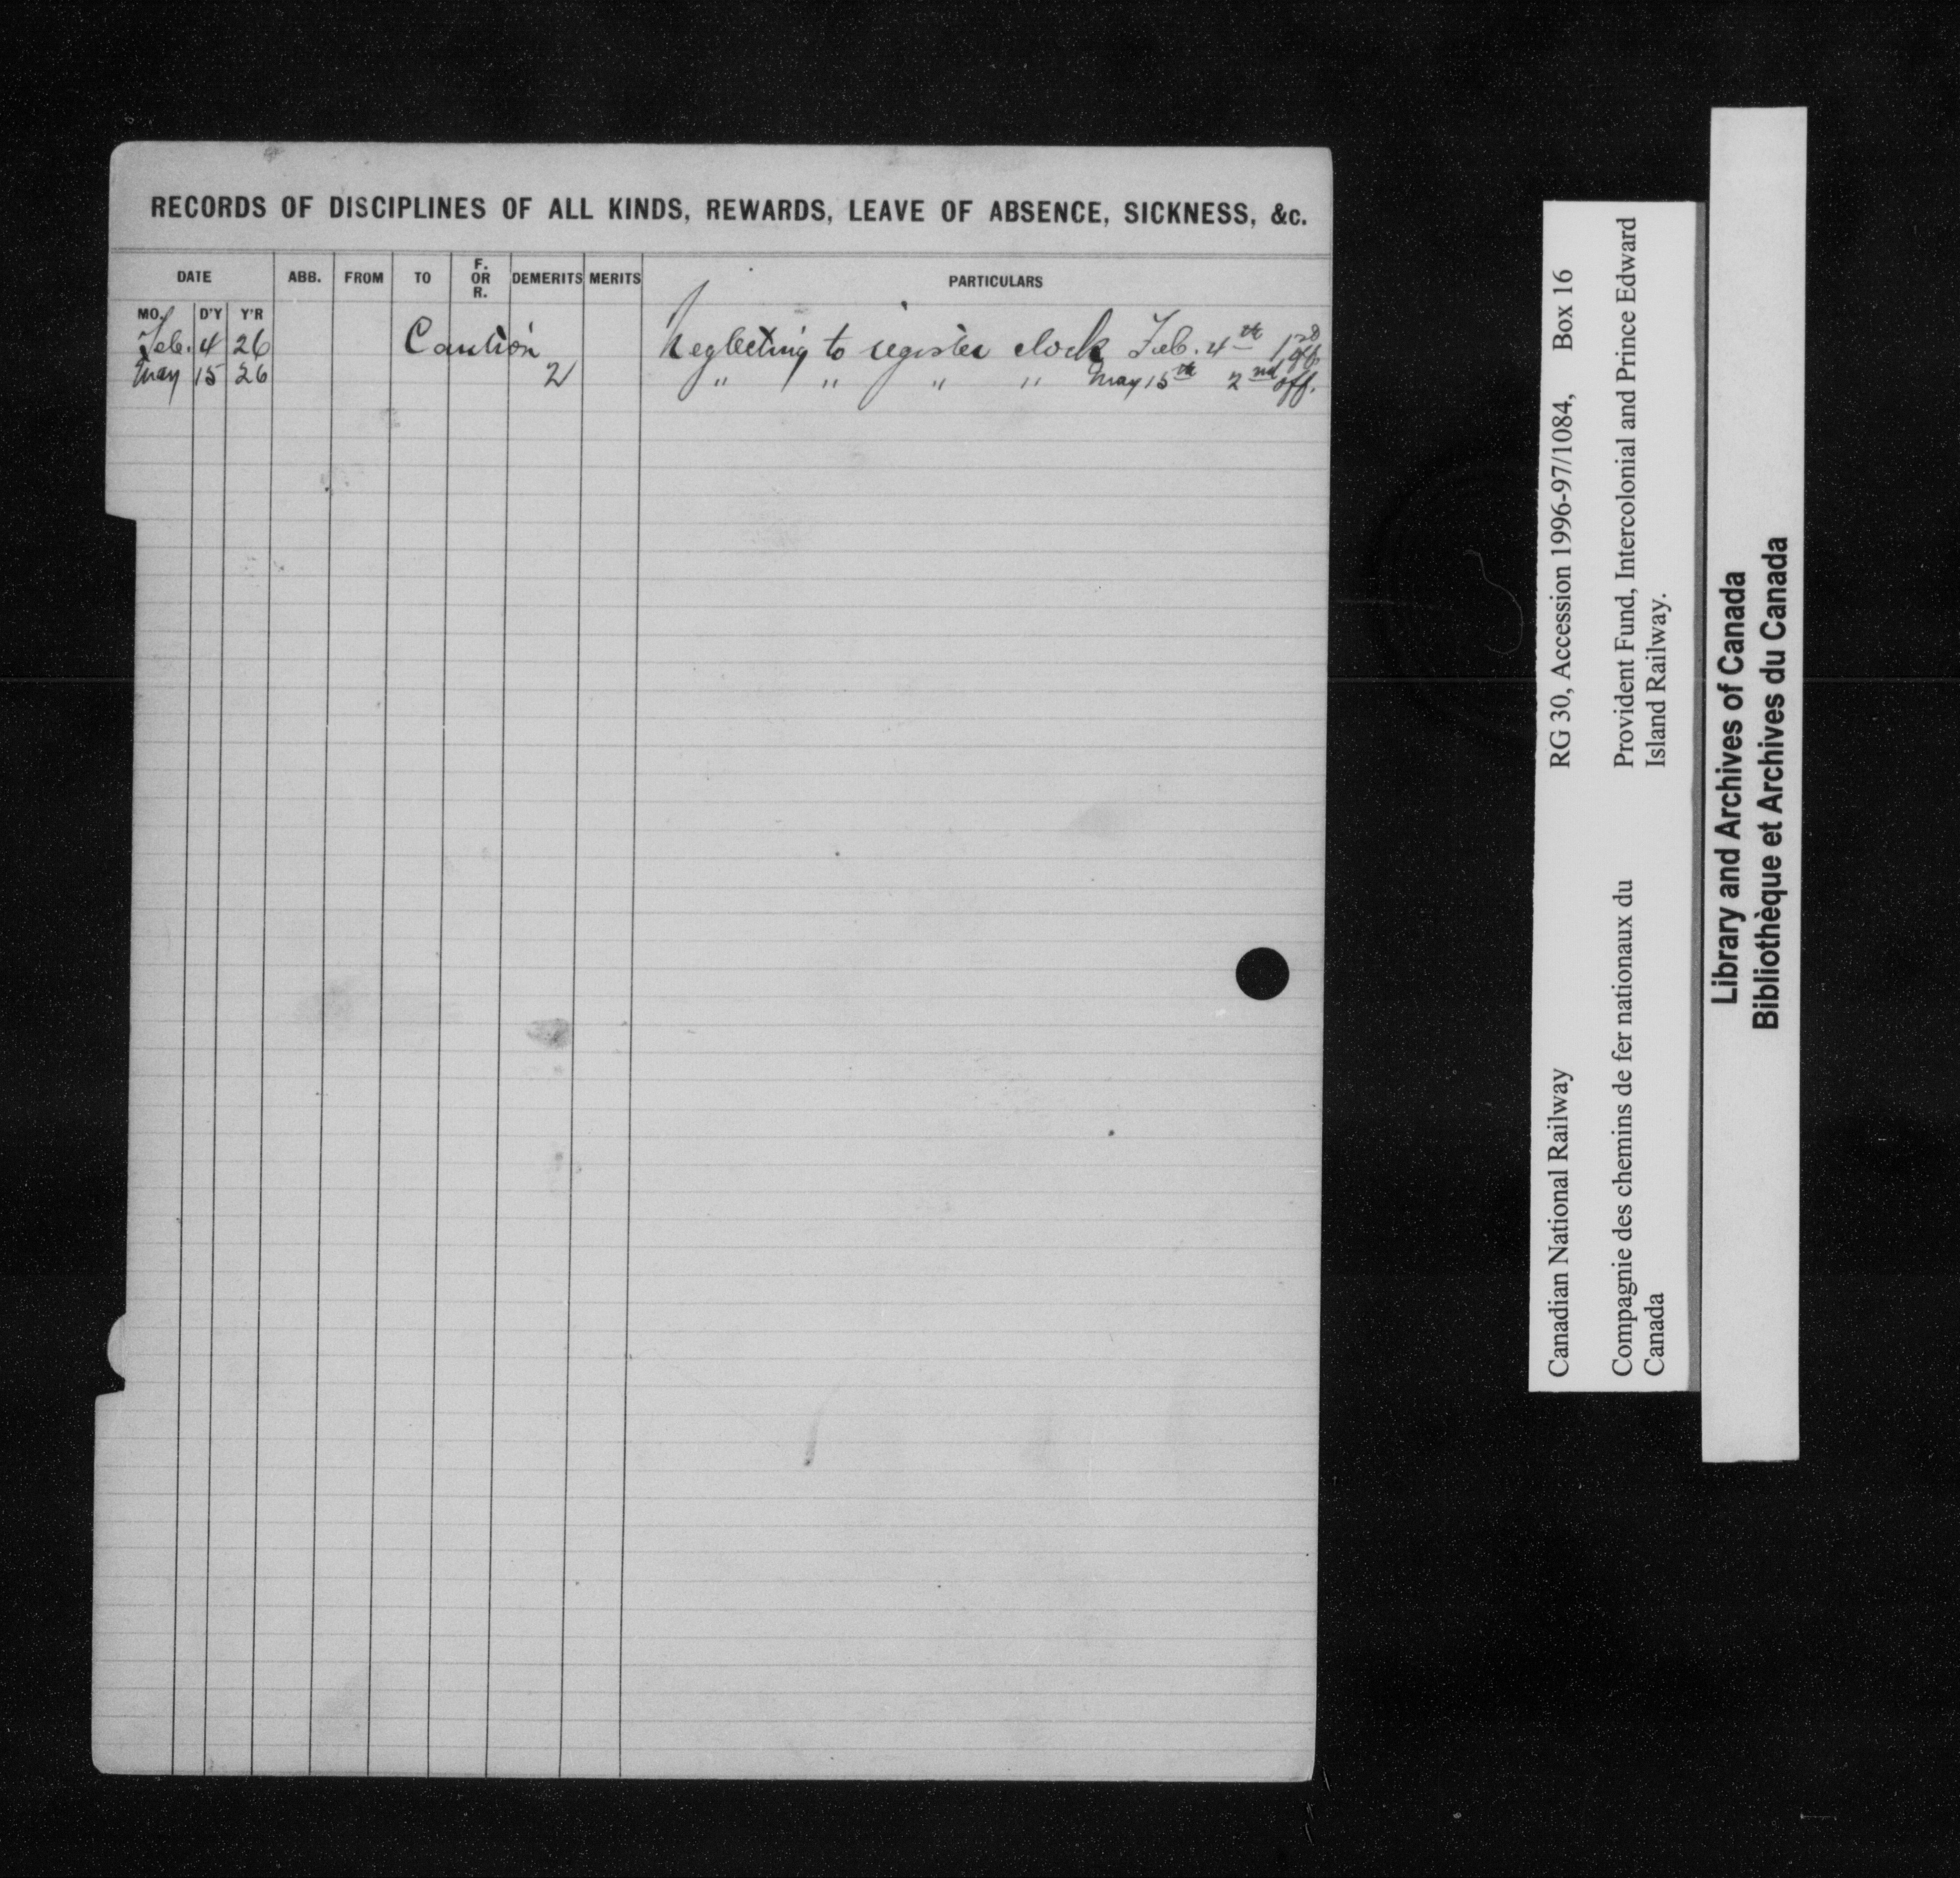 RECORDS OF DISCIPLINES OF ALL KINDS, REWARDS, LEAVE OF ABSENCE, SICKNESS, &c.
DATE ABB. FROM TO F. OR R. DEMERITS MERITS PARTICULARS
MO. D'Y Y'R
Feb. 4 26 Caution Neglecting to register clock Feb. 4th 1st off.
May 15 26 2 " " " " May 15th 2nd off.
Canadian National Railway RG 30, Accession 1996-97/1084, Box 16
Compagnie des chemins de fer nationaux du Provident Fund, Intercolonial and Prince Edward
Canada Island Railway.
Library and Archives of Canada
Bibliothèque et Archives du Canada